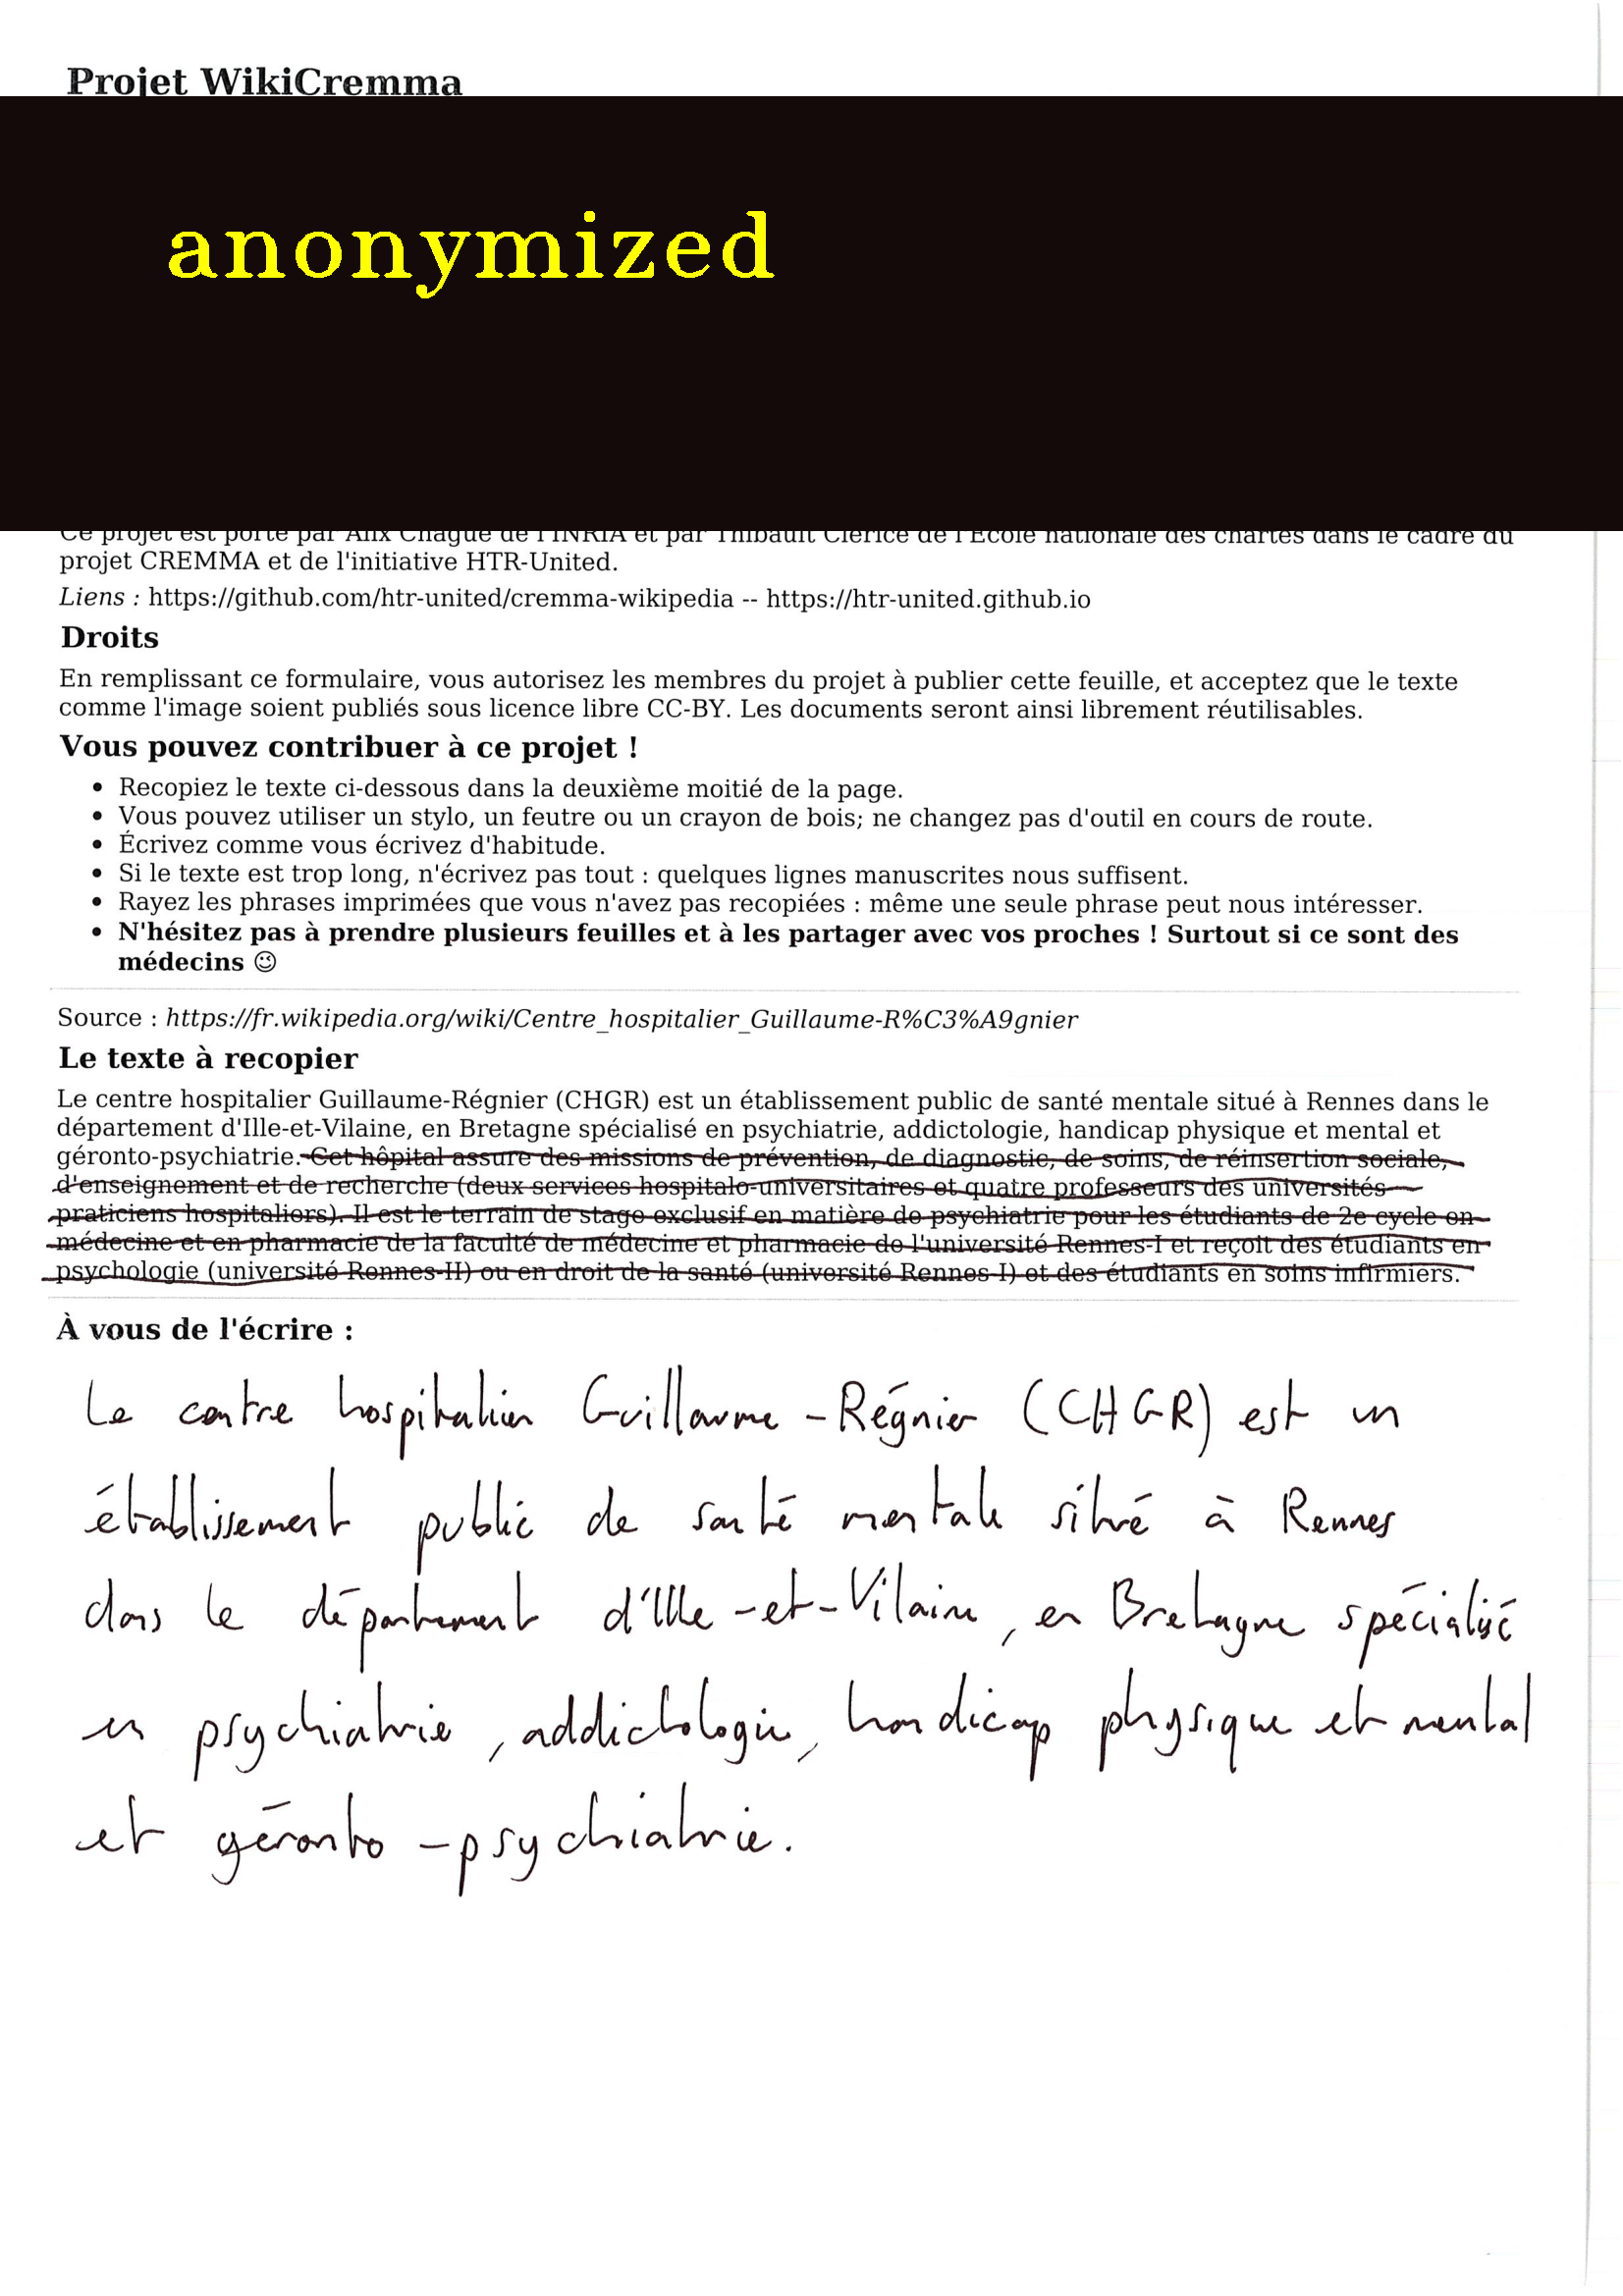 Projet WikiCremma
anonymized
Ce projet est porté par Alix Chagué de l'INRIA et par Thibault Clérice de l'École nationale des chartes dans le cadre du
projet CREMMA et de l'initiative HTR-United.
Liens : https://github.com/htr-united/cremma-wikipedia -- https://htr-united.github.io
Droits
En remplissant ce formulaire, vous autorisez les membres du projet à publier cette feuille, et acceptez que le texte
comme l'image soient publiés sous licence libre CC-BY. Les documents seront ainsi librement réutilisables.
Vous pouvez contribuer à ce projet !
• Recopiez le texte ci-dessous dans la deuxième moitié de la page.
• Vous pouvez utiliser un stylo, un feutre ou un crayon de bois; ne changez pas d'outil en cours de route.
• Écrivez comme vous écrivez d'habitude.
• Si le texte est trop long, n'écrivez pas tout : quelques lignes manuscrites nous suffisent.
• Rayez les phrases imprimées que vous n'avez pas recopiées : même une seule phrase peut nous intéresser.
• N'hésitez pas à prendre plusieurs feuilles et à les partager avec vos proches ! Surtout si ce sont des
médecins 😉
Source : https://fr.wikipedia.org/wiki/Centre_hospitalier_Guillaume-R%C3%A9gnier
Le texte à recopier
Le centre hospitalier Guillaume-Régnier (CHGR) est un établissement public de santé mentale situé à Rennes dans le
département d'Ille-et-Vilaine, en Bretagne spécialisé en psychiatrie, addictologie, handicap physique et mental et
géronto-psychiatrie. Cet hôpital assure des missions de prévention, de diagnostic, de soins, de réinsertion sociale,
d'enseignement et de recherche (deux services hospitalo-universitaires et quatre professeurs des universités
praticiens hospitaliers). Il est le terrain de stage exclusif en matière de psychiatrie pour les étudiants de 2e cycle en
médecine et en pharmacie de la faculté de médecine et pharmacie de l'université Rennes-I et reçoit des étudiants en
psychologie (université Rennes-II) ou en droit de la santé (université Rennes-I) et des étudiants en soins infirmiers.
À vous de l'écrire :
Le centre hospitalier Guillaume-Régnier (CHGR) est un
établissement public de santé mentale situé à Rennes
dans le département d'Ille-et-Vilaine, en Bretagne spécialisé
en psychiatrie, addictologie, handicap physique et mental
et géronto-psychiatrie.